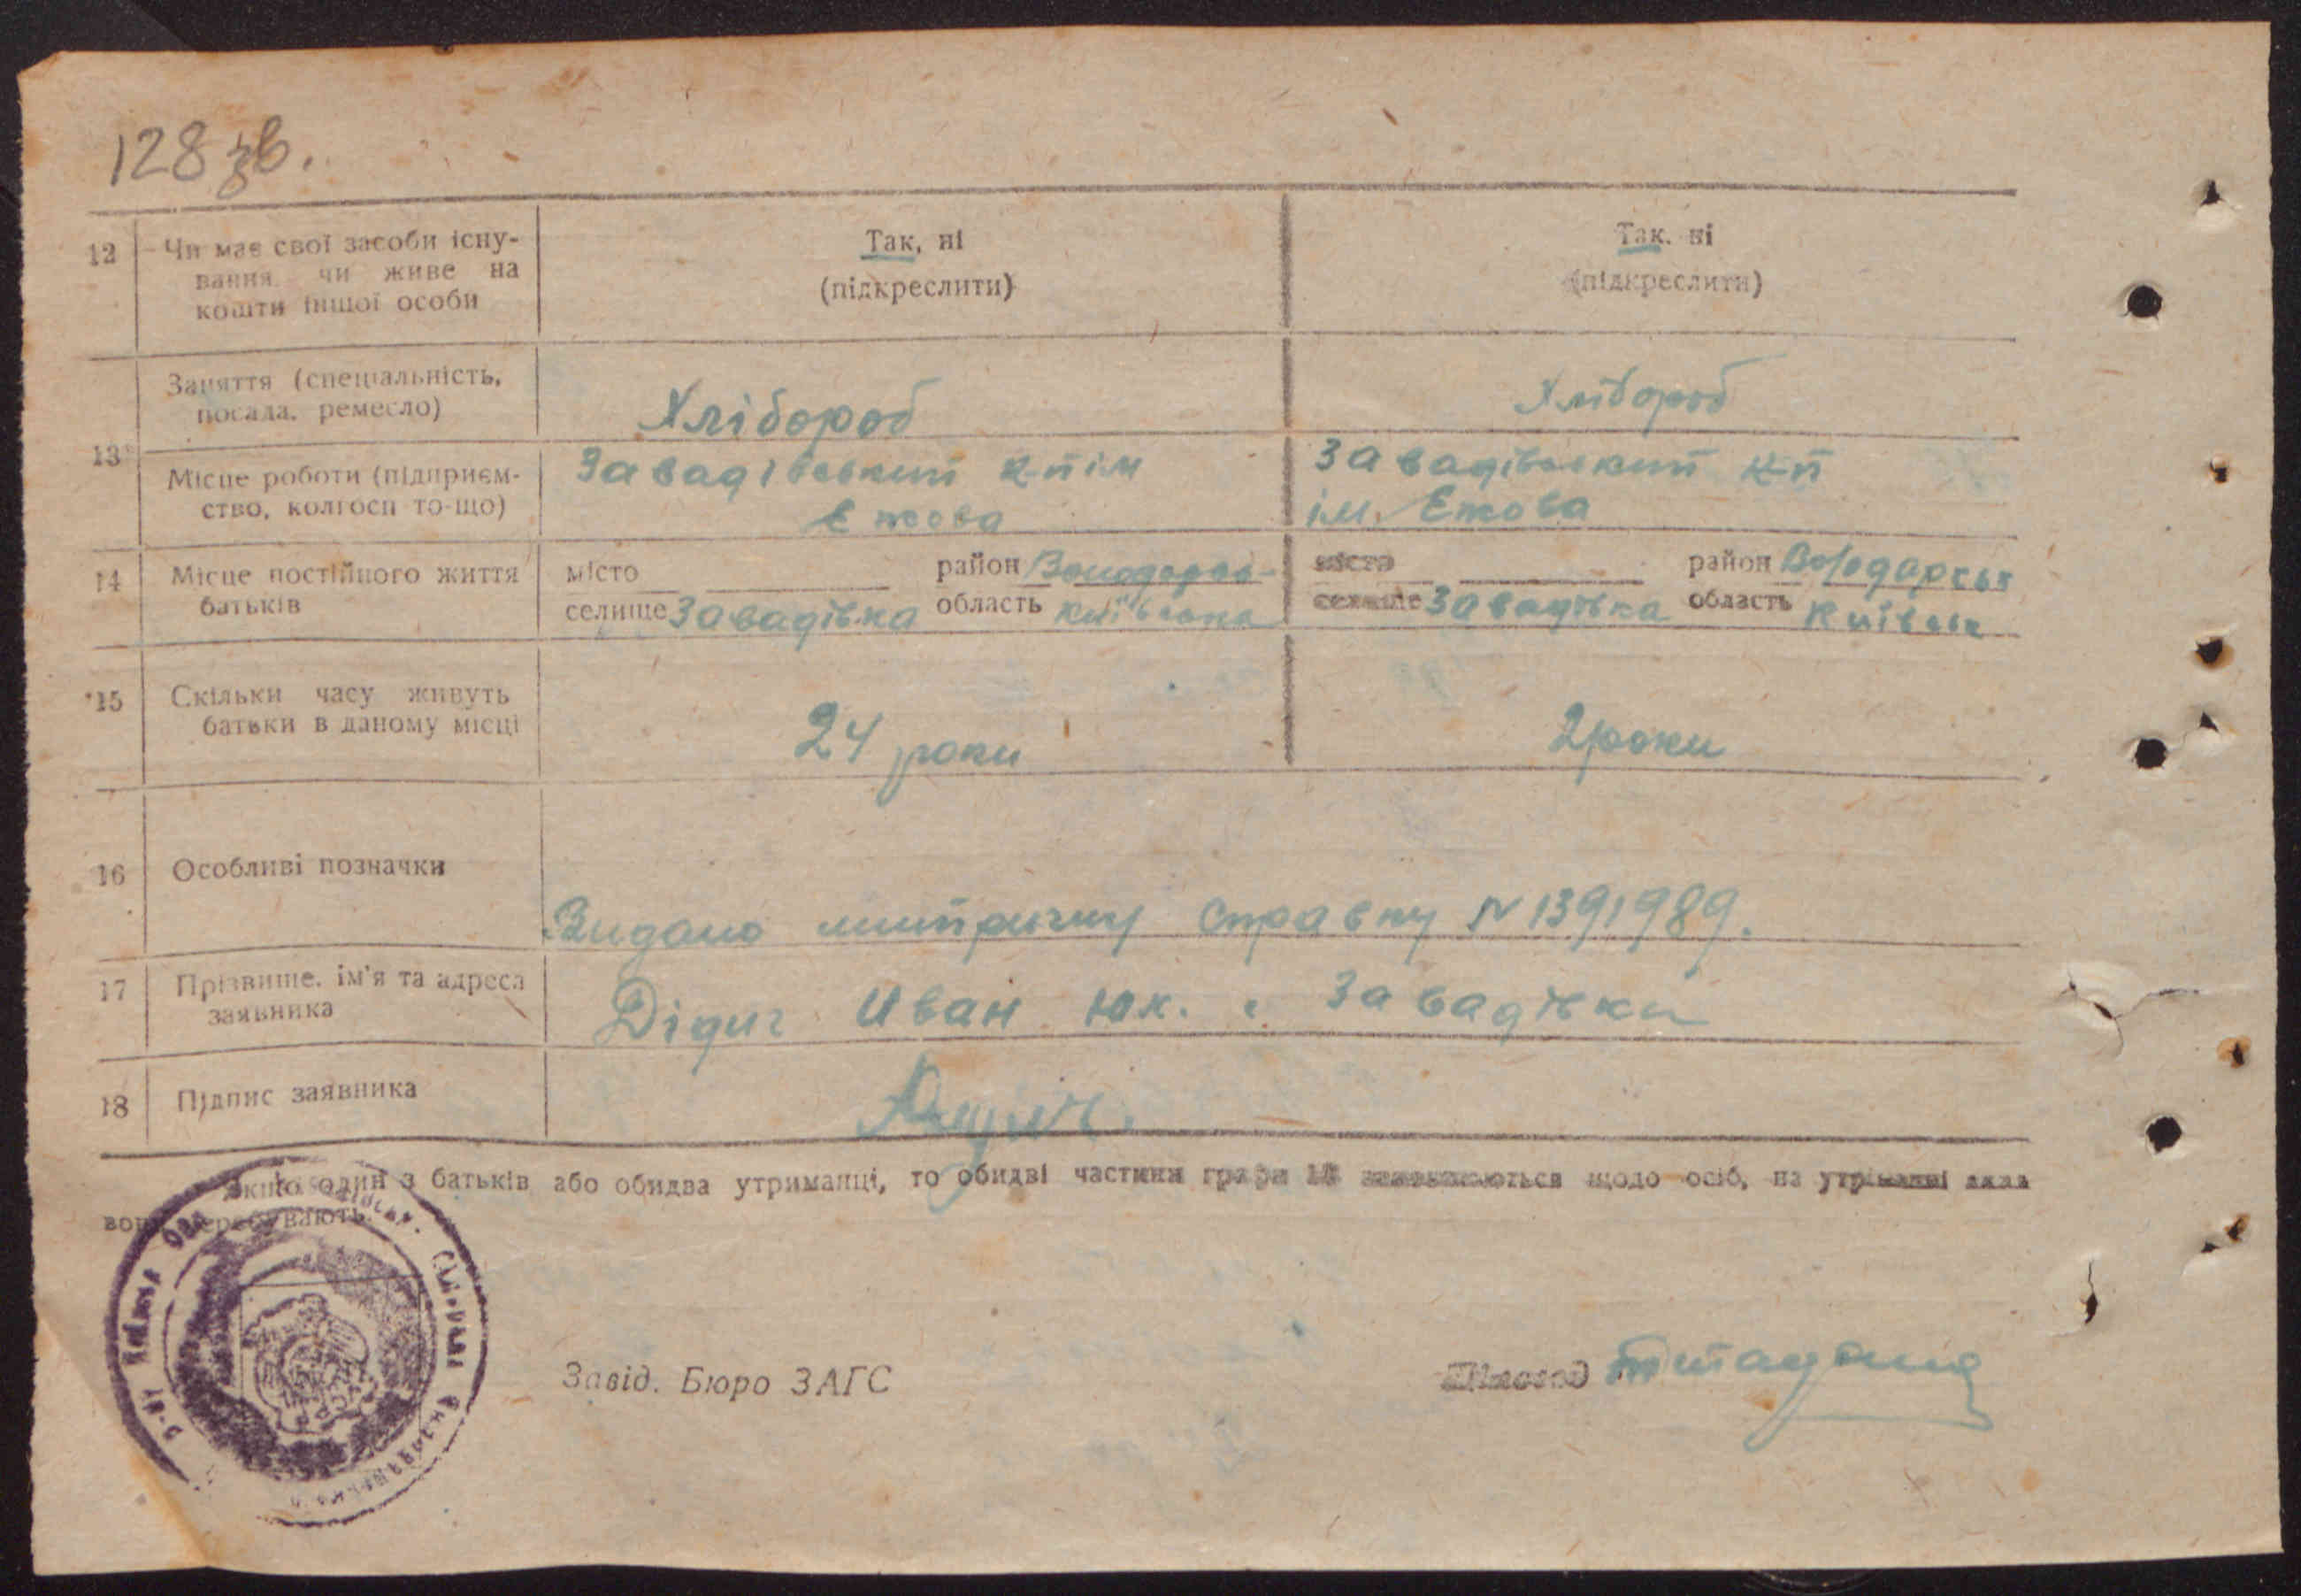 128 зв.
12 Чи має свої засоби існу- Так, ні Так, ні
вання чи живе на (підкреслити) (підкреслити)
кошти іншої особи
Заняття (спеціальність, Хлібороб Хлібороб
посада, ремесло)
13 Місце роботи (підприєм- Завадівський к-п ім Завадівський к-п
ство, колгосп то-що) Ежова ім. Ежова
14 Місце постійного життя місто район Володарсь- місто район Володарськ
батьків селище Завадівка область Київська селище Завадівка область Київськ
15 Скільки часу живуть 24 роки 2 роки
батьки в даному місці
16 Особливі позначки
Видано митричну справку N 1391989.
17 Прізвище, ім'я та адреса Дідич Иван Юк. с Завадівки
заявника
18 Підпис заявника
Якщо один з батьків або обидва утриманці, то обидві частини графи заповнюються щодо осіб, на утриманні яких
вони перебувають.
Завід. Бюро ЗАГС